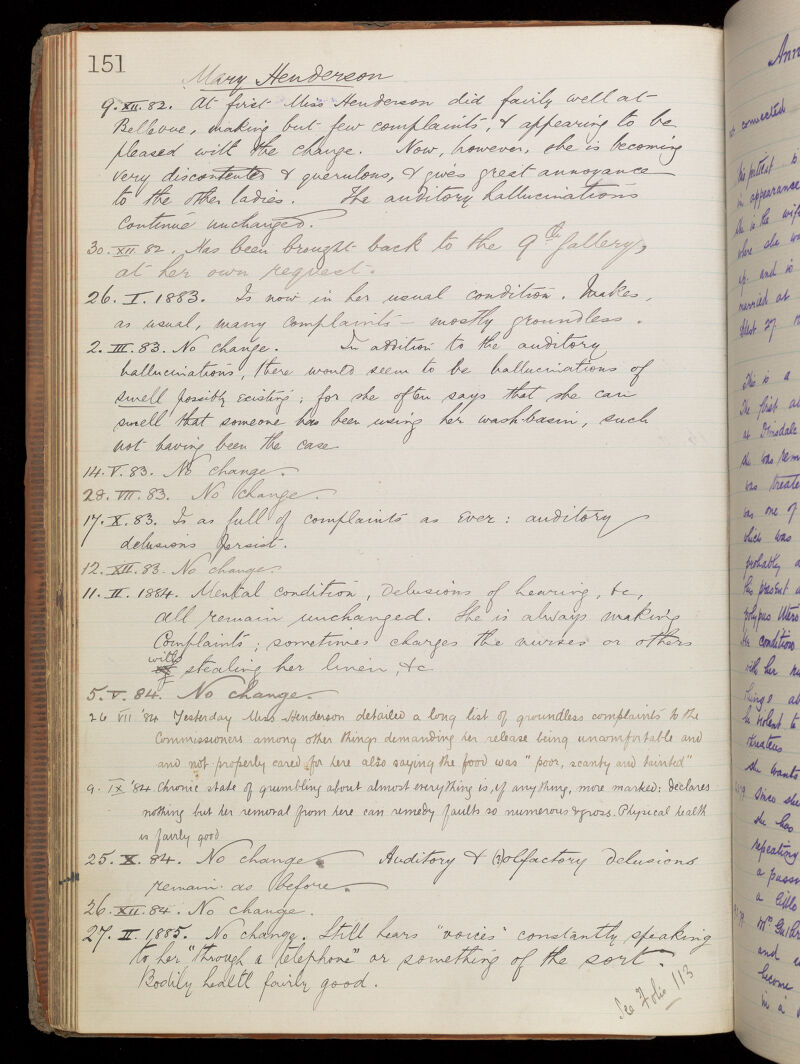 151
Mary Henderson
9.XII.82. At first Miss Henderson did fairly well at
Bellevue, making but few complaints, & appearing to be
pleased with the change. Now, however, she is becoming
very discontented & querulous, & gives great annoyance
to the other ladies. The auditory hallucinations
continue unchanged.
30.XII.82. Has been brought back to the 9th Gallery,
at her own request.
26.I.1883. Is now in her usual condition. Makes,
as usual, many complaints – mostly groundless.
2.III.83. No change. In addition to the auditory
hallucinations, there would seem to be hallucinations of
smell possibly existing; for she often says that she can
smell that someone has been using her wash-basin, such
not having been the case
14.V.83. No change.
28.VII.83. No change.
17.X.83. Is as full of complaints as ever: auditory
delusions persist.
12.XII.83. No change.
11.II.1884. Mental condition, delusions of hearing, &c,
all remain unchanged. She is always making
complaints; sometimes charges the nurses or others
with
stealing her linen, &c
5.V.84. No change.
26 VII '84 Yesterday Miss Henderson detailed a long list of groundless complaints to the
Commissioners among other things demanding her release being uncomfortable and
and not properly cared for here also saying the food was "poor, scanty and tainted"
9. IX '84 Chronic state of grumbling about almost everything is, if anything, more marked: declares
nothing but her removal from here can remedy faults so numerous & gross. Physical health
is fairly good
25.X.84. No change. Auditory & (?) olfactory delusions
remain as before.
26.XII.84. No change.
27.II.1885. No change. Still hears "voices" constantly speaking
to her "through a telephone" or something of the sort.
Bodily health fairly good.
See Folio 113
Ann
connected
this patient is
in appearance
she is the wife
where she was
up and is
married at
This is a
The first at
at Dinsdale
she was rem
was treated
was one of
which was
probably a
the present a
the condition
with her
things ab
be violent to
threatens
she wants
since she
she has
repeating
a passi
a little
and
become
in a